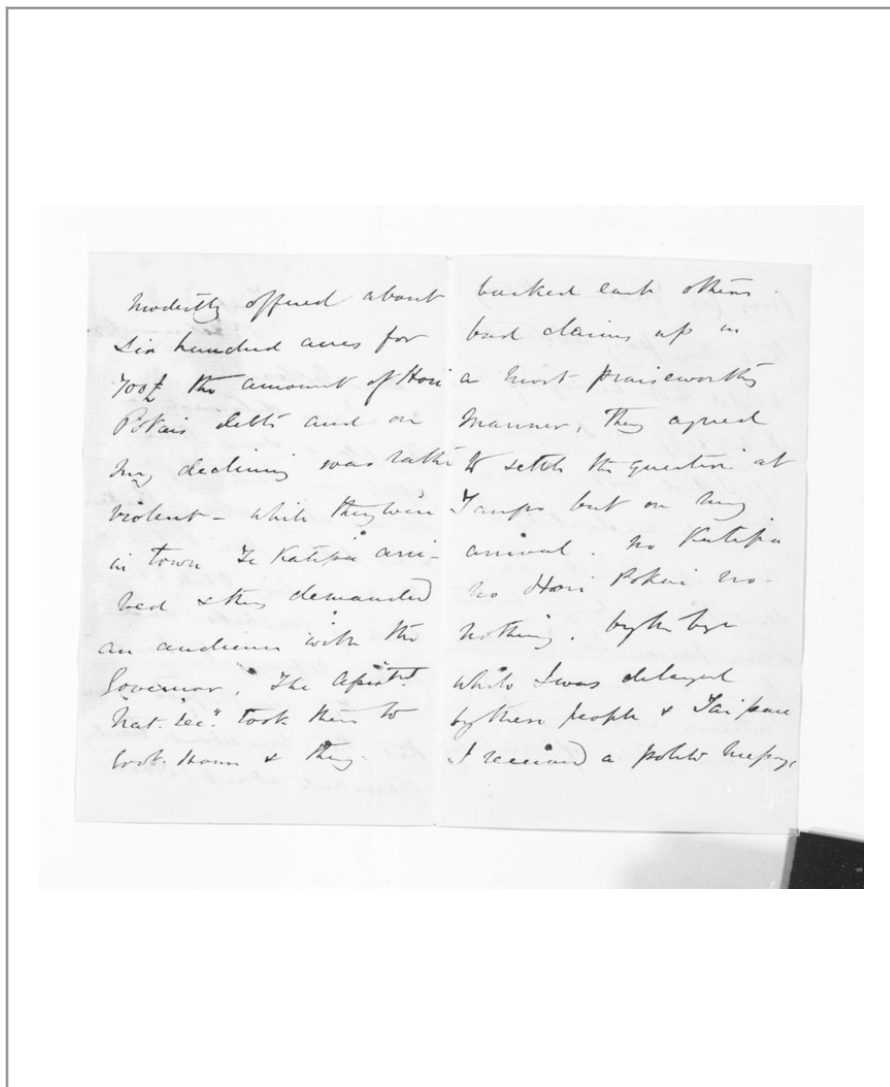 modestly offered about
six hundred acres for
700£ the amount of Hori
Pokais debts and on
my declining was rather
violent - while they were
in town Te Katipa arri-
ved & they demanded
an audience with the
Governor. The Assist.
Nat. Sec. took them to
Govt. House & they
backed each others
bad claims up in
a most praiseworthy
manner, they agreed
to settle the question at
but on my
arrival. no Katipa
no Hori Pokai no-
nothing. by the bye
while I was delayed
by these people & Taipau
I received a polite message